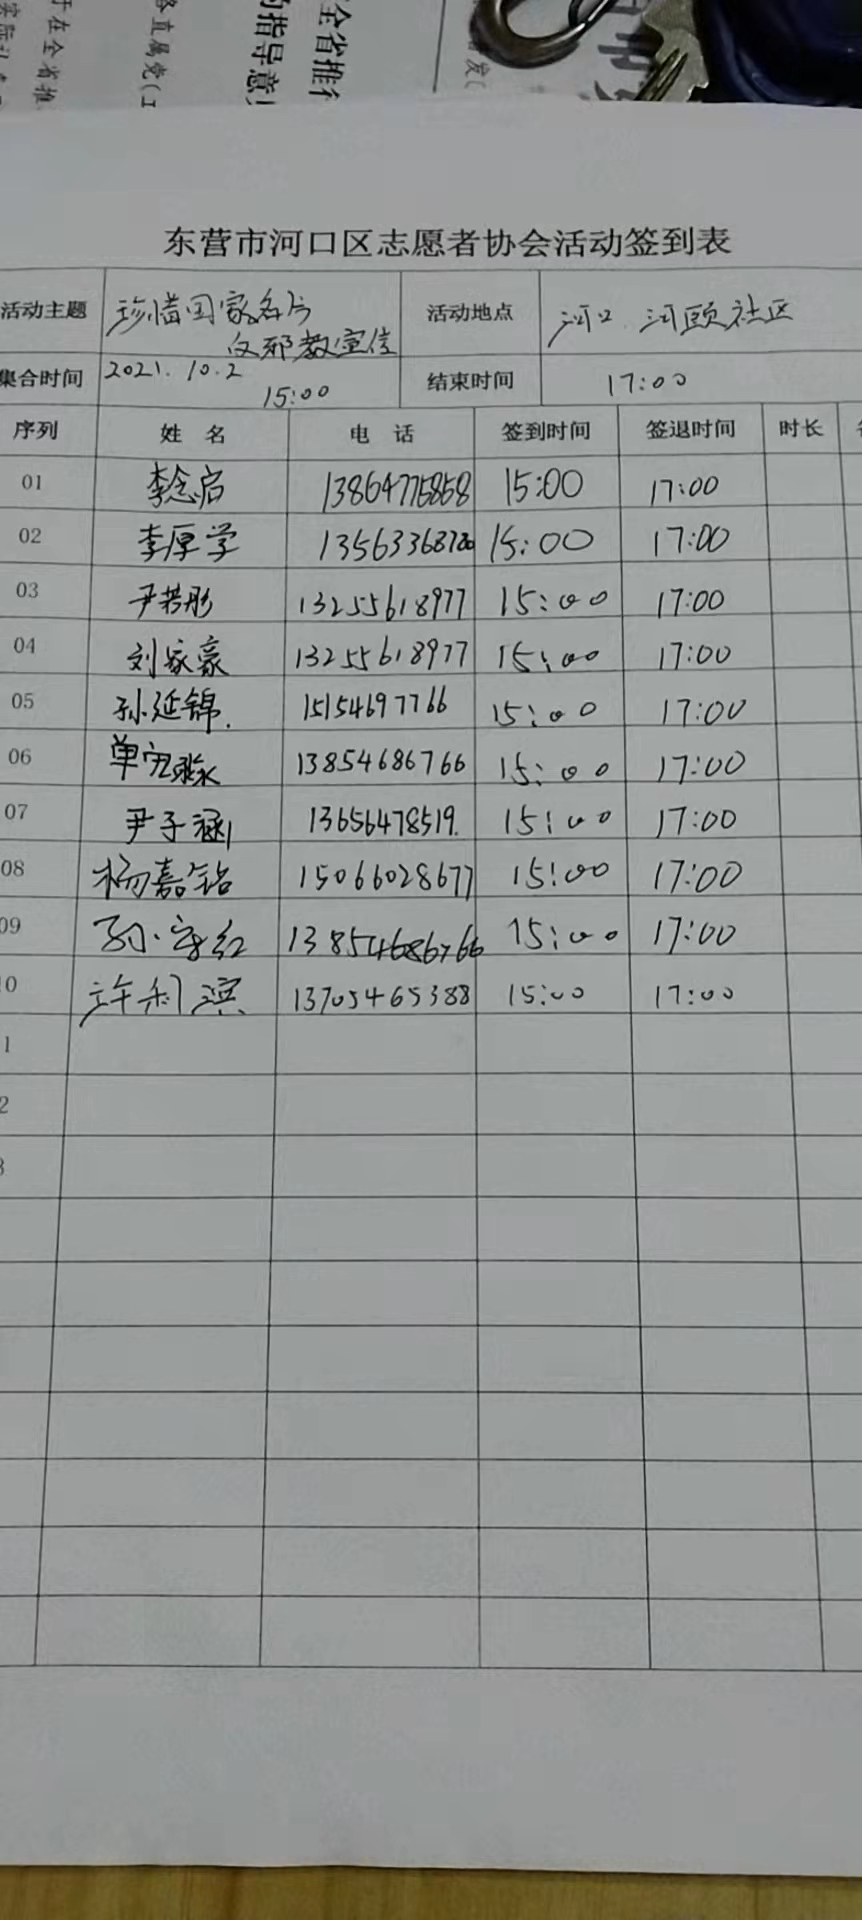 全省推行
的指导意见
各直属党(工
于在全省推
东营市河口区志愿者协会活动签到表
活动主题 珍惜国家名片 活动地点 河口 河颐社区
反邪教宣传
集合时间 2021.10.2 15:00 结束时间 17:00
序列 姓名 电话 签到时间 签退时间 时长
01 李念启 13864775858 15:00 17:00
02 李厚学 15:00 17:00
03 尹若彤 13255618977 15:00 17:00
04 刘家豪 13255618977 15:00 17:00
05 孙延锦. 15154697766 15:00 17:00
06 单 13854686766 15:00 17:00
07 尹子涵 13656478519. 15:00 17:00
08 杨嘉铭 15066028677 15:00 17:00
09 孙守红 13854686766 15:00 17:00
0 许利滨 13705465388 15:00 17:00
1
2
3